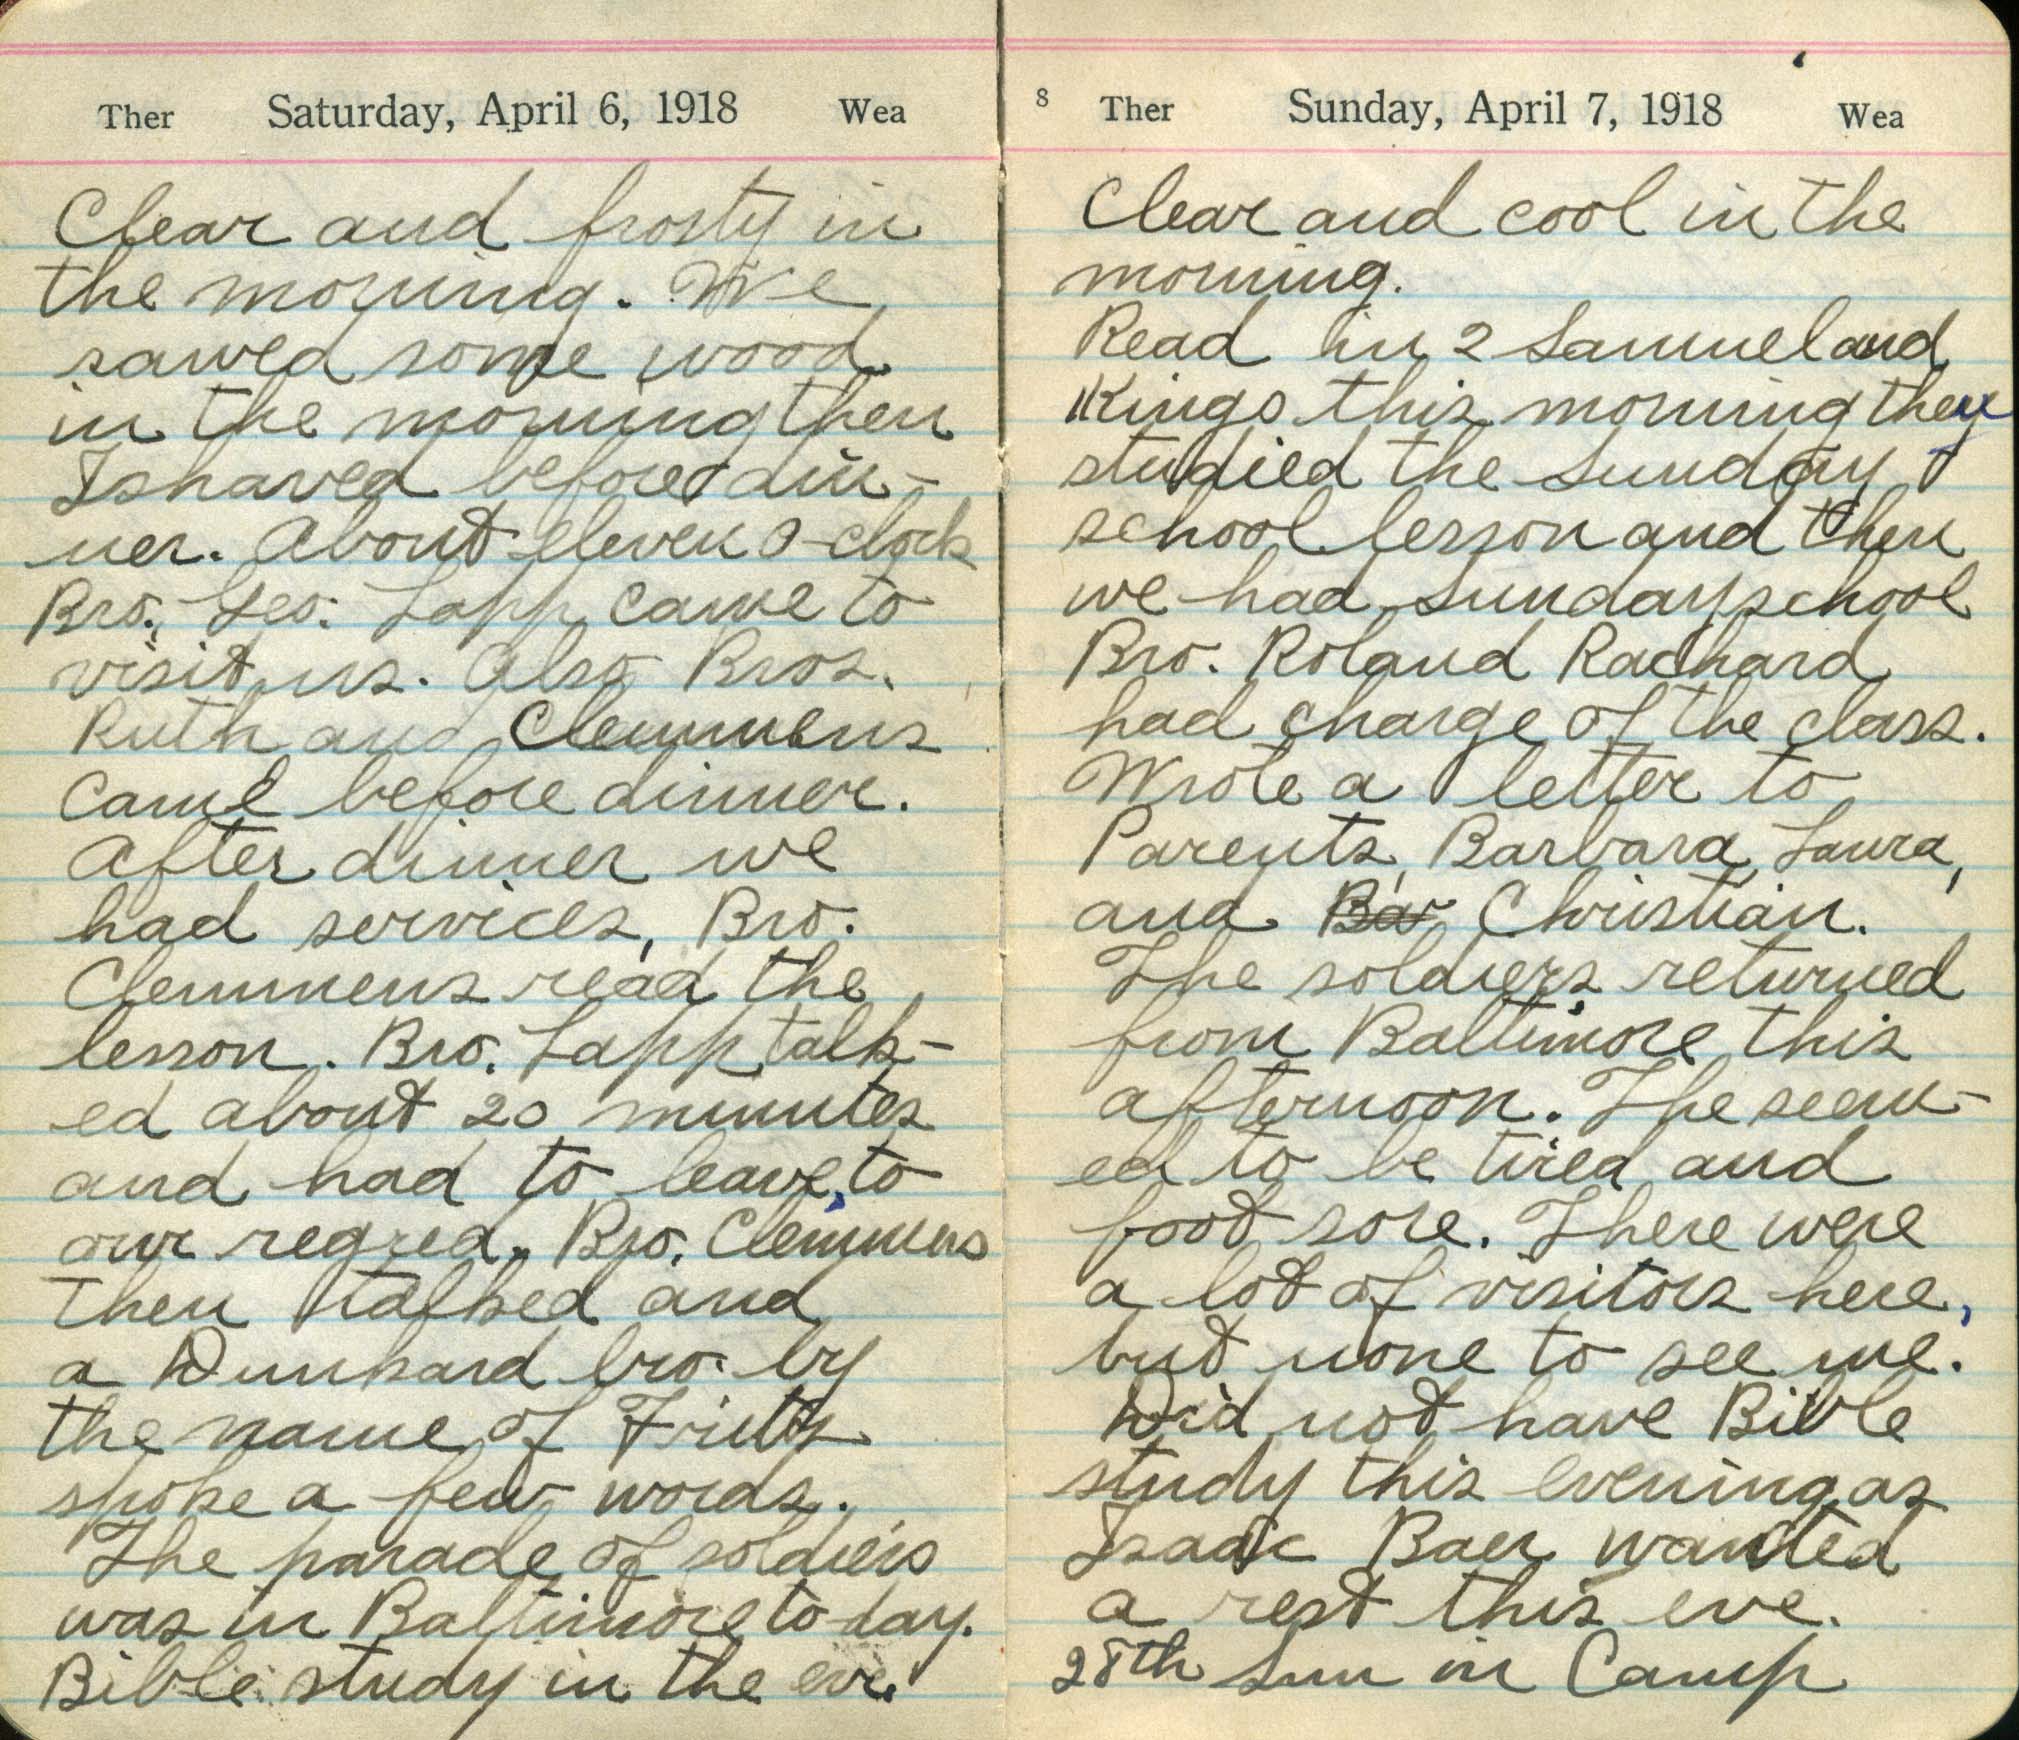 Ther Saturday, April 6, 1918 Wea
Clear and frosty in
the morning. We
sawed some wood
in the morning then
I shaved before din-
ner. About eleven O-clock
Bro. Geo. Lapp came to
visit us. Also Bros.
Ruth and Clemmens
came before dinner.
After dinner we
had services, Bro.
Clemmens read the
lesson. Bro. Lapp talk-
ed about 20 minutes
and had to leave, to
our regred. Bro. Clemmens
then talked and
a Dunkard bro. by
the name of
spoke a few words.
The parade of soldiers
was in Baltimore to-day.
Bible study in the eve.
8 Ther Sunday, April 7, 1918 Wea
Clear and cool in the
morning.
Read in 2 Samuel and
Kings this morning then
studied the Sunday
school lesson and then
we had Sunday school
Bro. Roland Rachard
had charge of the class.
Wrote a letter to
Parents, Barbara, Laura,
and Bar Christian.
The soldiers returned
from Baltimore this
afternoon. The seem-
ed to be tired and
foot sore. There were
a lot of visitors here,
but none to see me.
Did not have Bible
study this evening as
Isaac Baer wanted
a rest this eve.
28th Sun in Camp